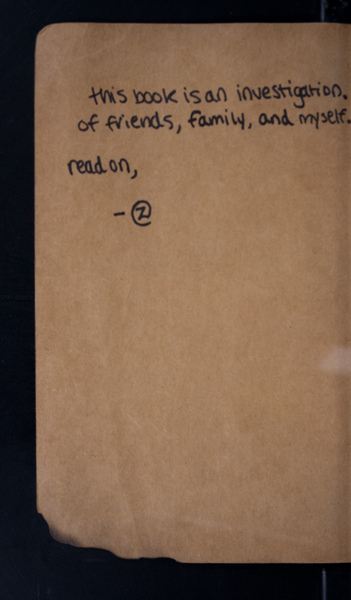 this book is an investigation.
of friends, family, and myself.
read on,
- Z